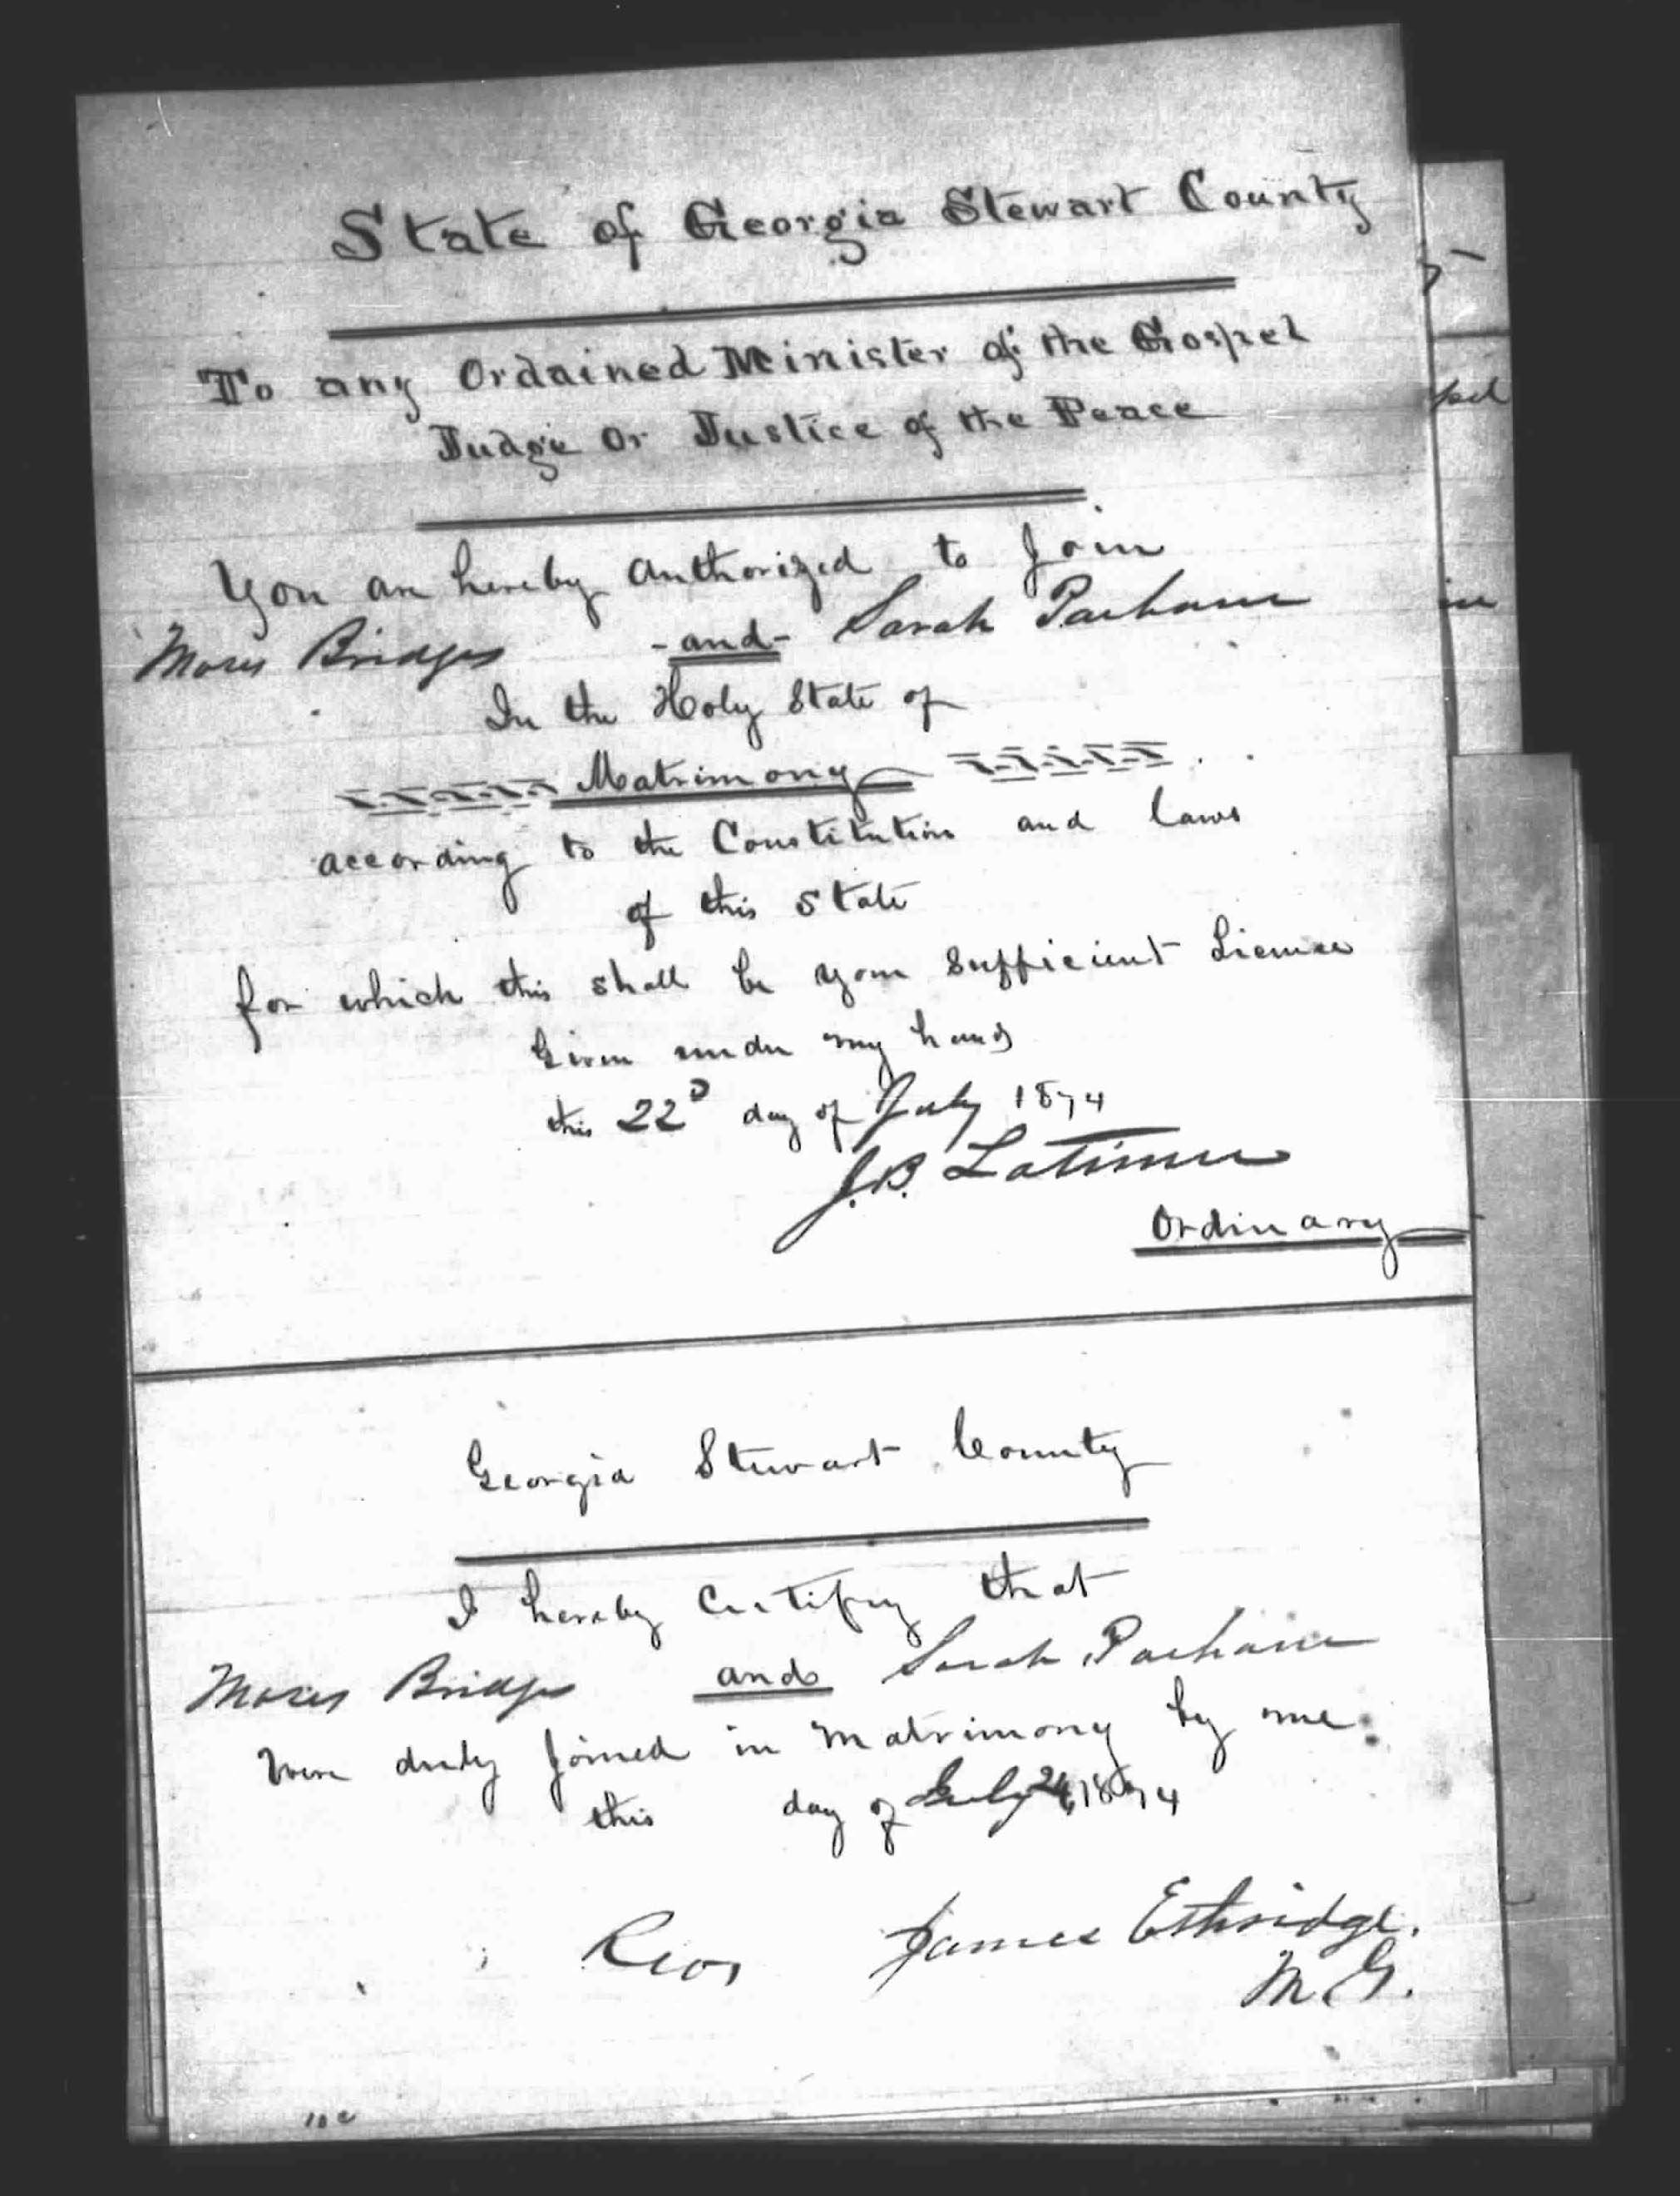 State of Georgia Stewart County
To any Ordained Minister of the Gospel
Judge Or Justice of the Peace
You are hereby authorized to Join
Moses Bridges - and - Sarah Parham
In the Holy State of
Matrimony
according to the Constitution and laws
of this State
for which this shall be your sufficient License
Given under my hand
this 22D day of July 1874
J.B. Latimer
Ordinary
Georgia Stewart County
I hereby Certify that
Moses Bridges and Sarah Parham
were duly Joined in Matrimony by me
this day of July 24, 1874
James Ethridge.
M.G.
pel
in